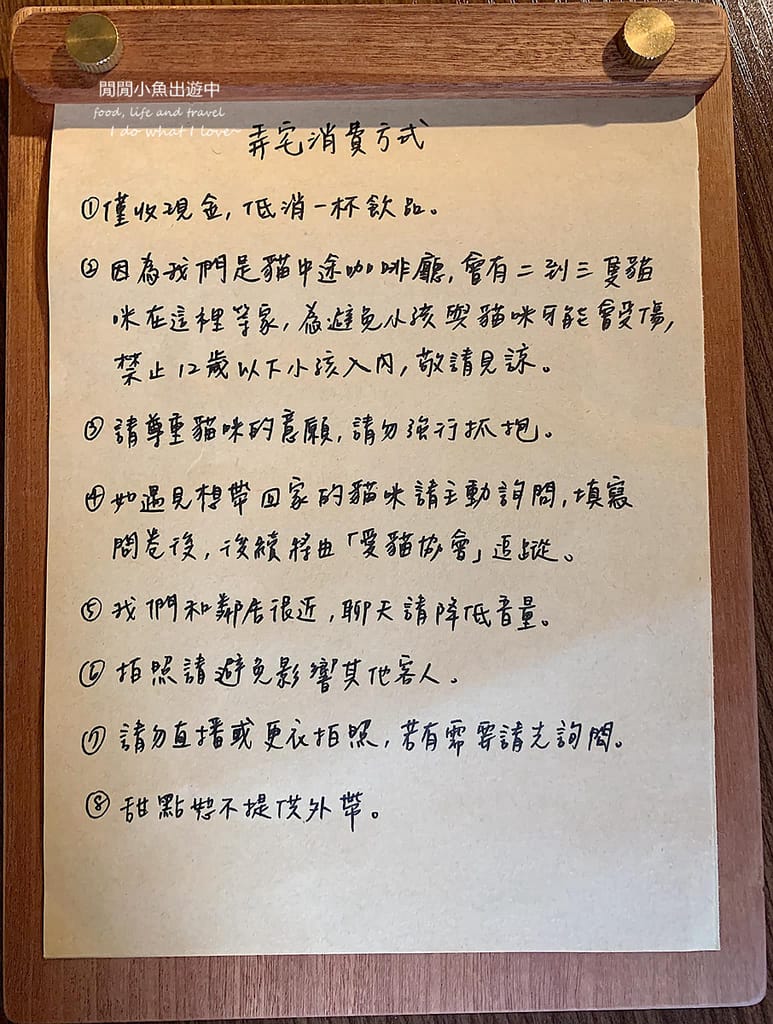 閒閒小魚出遊中
food, life and travel
I do what I love~
弄宅消費方式
①僅收現金,低消一杯飲品。
② 因為我們是貓中途咖啡廳,會有二到三隻貓
咪在這裡等家,為避免小孩與貓咪可能會受傷,
禁止12歲以下小孩入內,敬請見諒。
③ 請尊重貓咪的意願,請勿強行抓抱。
④ 如遇見想帶回家的貓咪請主動詢問,填寫
問卷後,後續將由「愛貓協會」追蹤。
⑤ 我們和鄰居很近,聊天請降低音量。
⑥ 拍照請避免影響其他客人。
⑦ 請勿直播或更衣拍照,若有需要請先詢問。
⑧ 甜點恕不提供外帶。